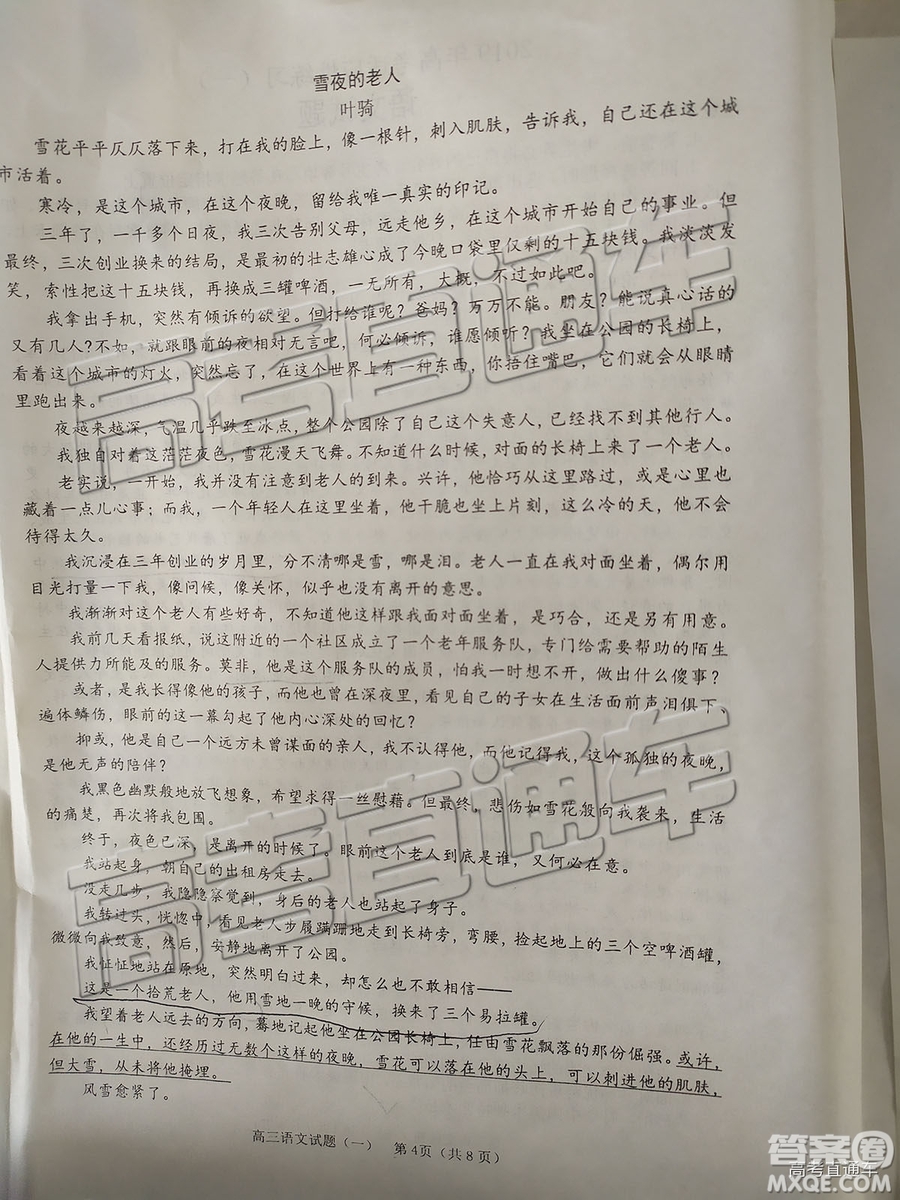 雪夜的老人
叶骑
雪花平平仄仄落下来，打在我的脸上，像一根针，刺入肌肤，告诉我，自己还在这个城
市活着。
寒冷，是这个城市，在这个夜晚，留给我唯一真实的印记。
三年了，一千多个日夜，我三次告别父母，远走他乡，在这个城市开始自己的事业。但
最终，三次创业换来的结局，是最初的壮志雄心成了今晚口袋里仅剩的十五块钱。我淡淡发
笑，索性把这十五块钱，再换成三罐啤酒，一无所有，大概，不过如此吧。
我拿出手机，突然有倾诉的欲望。但打给谁呢？爸妈？万万不能。朋友？能说真心话的
又有几人？不如，就跟眼前的夜相对无言吧，何必倾诉，谁愿倾听？我坐在公园的长椅上，
看着这个城市的灯火，突然忘了，在这个世界上有一种东西，你捂住嘴巴，它们就会从眼睛
里跑出来。
夜越来越深，气温几乎跌至冰点，整个公园除了自己这个失意人，已经找不到其他行人。
我独自对着这茫茫夜色，雪花漫天飞舞。不知道什么时候，对面的长椅上来了一个老人。
老实说，一开始，我并没有注意到老人的到来。兴许，他恰巧从这里路过，或是心里也
藏着一点儿心事；而我，一个年轻人在这里坐着，他干脆也坐上片刻，这么冷的天，他不会
待得太久。
我沉浸在三年创业的岁月里，分不清哪是雪，哪是泪。老人一直在我对面坐着，偶尔用
目光打量一下我，像问候，像关怀，似乎也没有离开的意思。
我渐渐对这个老人有些好奇，不知道他这样跟我面对面坐着，是巧合，还是另有用意。
我前几天看报纸，说这附近的一个社区成立了一个老年服务队，专门给需要帮助的陌生
人提供力所能及的服务。莫非，他是这个服务队的成员，怕我一时想不开，做出什么傻事？
或者，是我长得像他的孩子，而他也曾在深夜里，看见自己的子女在生活面前声泪俱下、
遍体鳞伤，眼前的这一幕勾起了他内心深处的回忆？
抑或，他是自己一个远方未曾谋面的亲人，我不认得他，而他记得我，这个孤独的夜晚，
是他无声的陪伴？
我黑色幽默般地放飞想象，希望求得一丝慰藉。但最终，悲伤如雪花般向我袭来，生活
的痛楚，再次将我包围。
终于，夜色已深，是离开的时候了。眼前这个老人到底是谁，又何必在意。
我站起身，朝自己的出租房走去。
没走几步，我隐隐察觉到，身后的老人也站起了身子。
我转过头，恍惚中，看见老人步履蹒跚地走到长椅旁，弯腰，捡起地上的三个空啤酒罐，
微微向我致意，然后，安静地离开了公园。
我怔怔地站在原地，突然明白过来，却怎么也不敢相信——
这是一个拾荒老人，他用雪地一晚的守候，换来了三个易拉罐。
我望着老人远去的方向，蓦地记起他坐在公园长椅上，任由雪花飘落的那份倔强。或许，
在他的一生中，还经历过无数个这样的夜晚，雪花可以落在他的头上，可以刺进他的肌肤，
但大雪，从未将他掩埋。
风雪愈紧了。
高三语文试题（一） 第4页（共8页）
高考直通车
高考直通车
答案圈
高考直通车
MXQE.COM